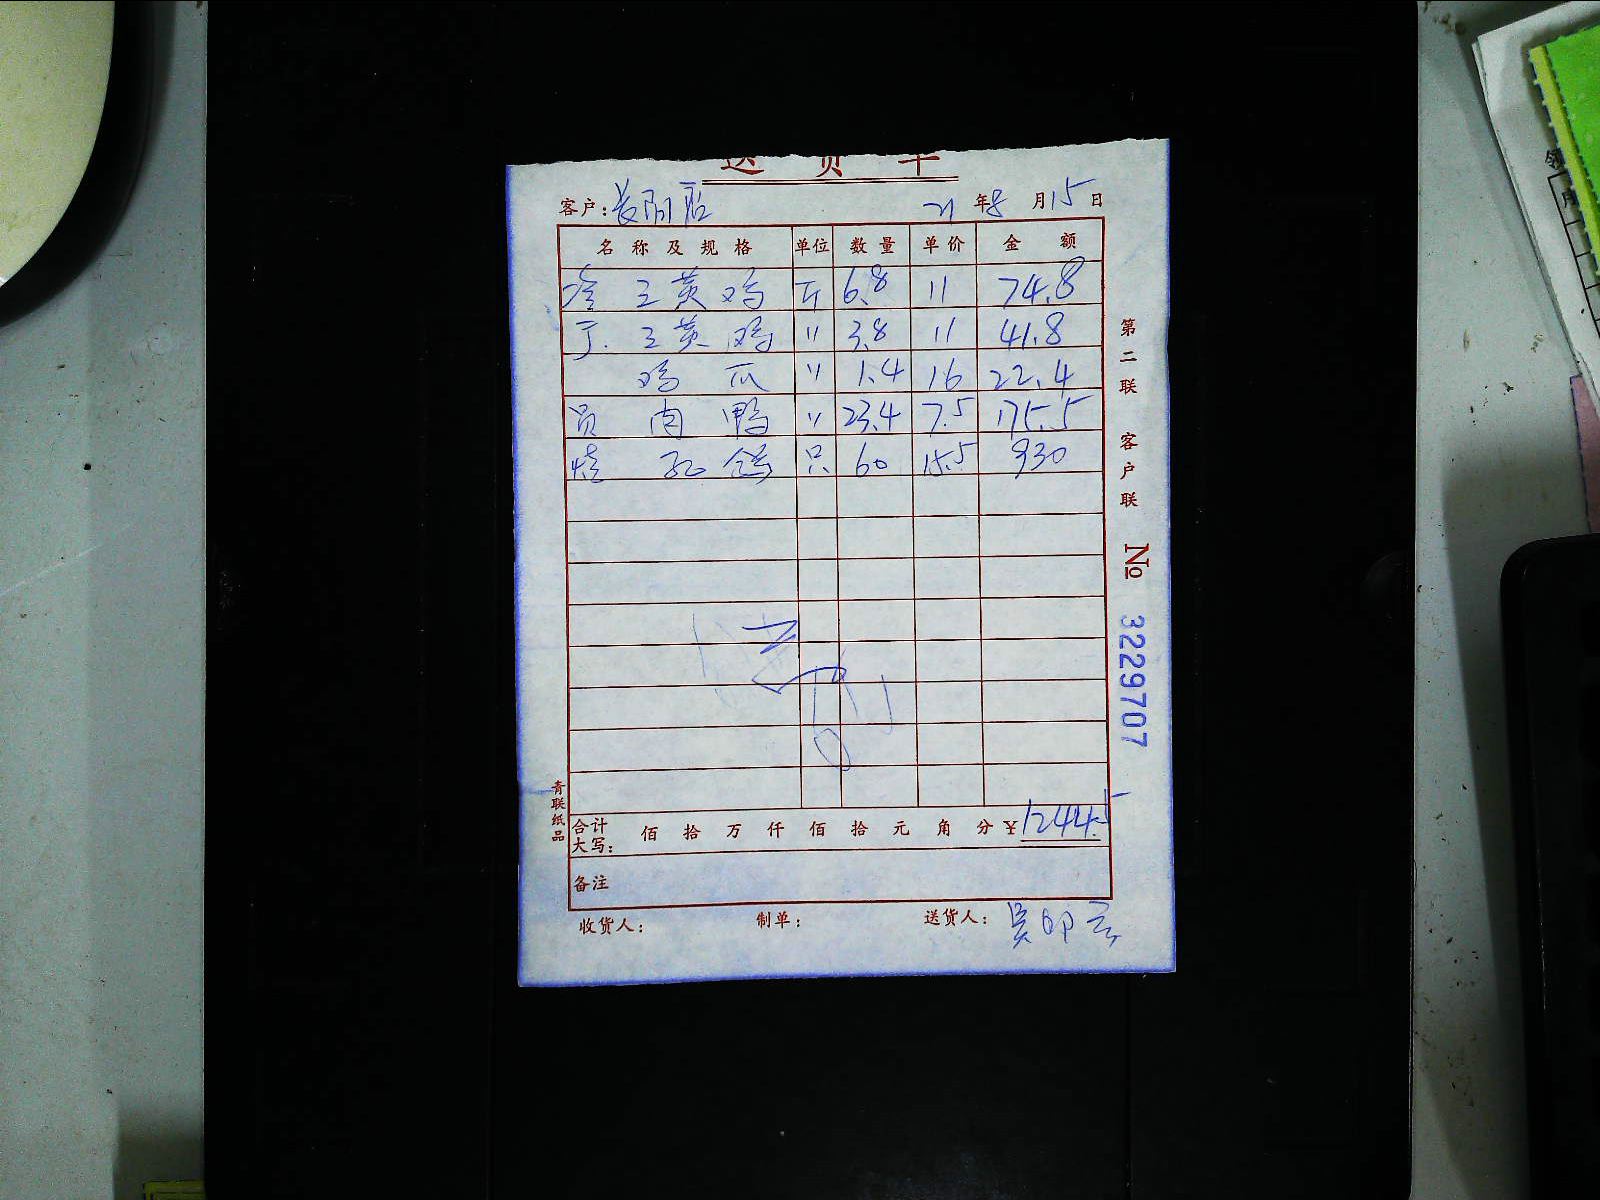 送货单
客户：长阳店 21年8月15日
名称及规格 单位 数量 单价 金额
三黄鸡 斤 6.8 11 74.8
丁. 三黄鸡 " 3.8 11 41.8
鸡爪 " 1.4 16 22.4
员 肉鸭 " 23.4 7.5 175.5
烧 孔鸽 只 60 15.5 930
合计大写： 佰拾万仟佰拾元角分 ¥1244.5
备注
收货人： 制单： 送货人：吴
第二联 客户联 № 3229707
青联纸品